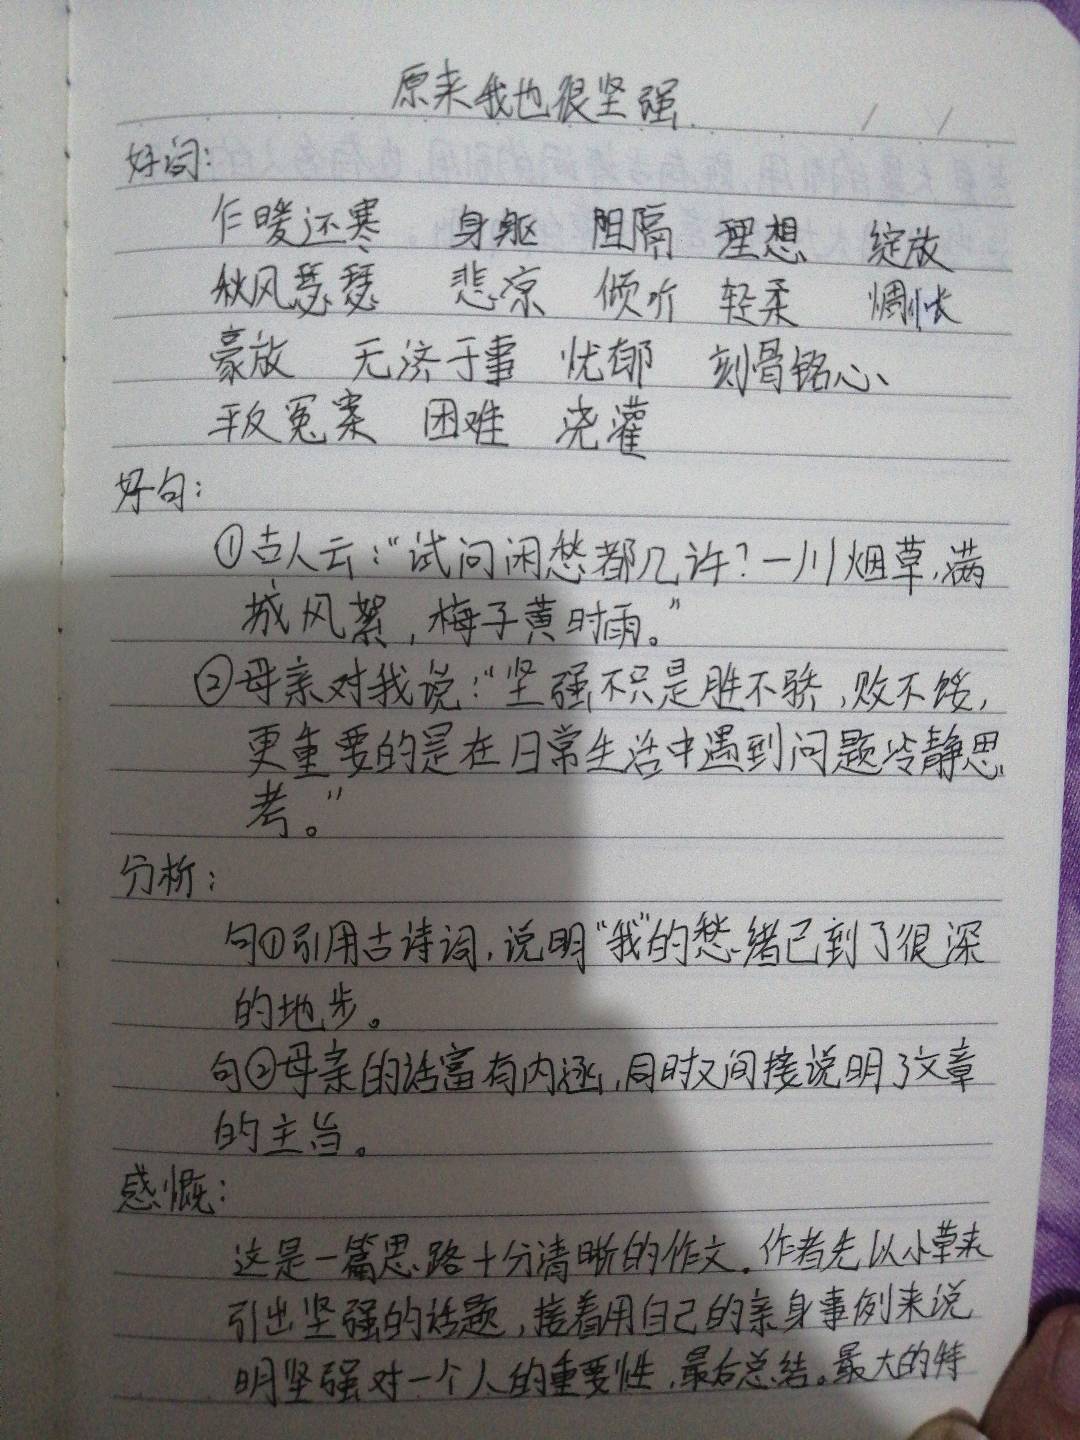 原来我也很坚强
好词：
乍暖还寒 身躯 阻隔 理想 绽放
秋风瑟瑟 悲凉 倾听 轻柔 惆怅
豪放 无济于事 忧郁 刻骨铭心
平反冤案 困难 浇灌
好句：
①古人云：“试问闲愁都几许？一川烟草，满
城风絮，梅子黄时雨。”
②母亲对我说：“坚强不只是胜不骄，败不馁，
更重要的是在日常生活中遇到问题冷静思
考。”
分析：
句①引用古诗词，说明“我”的愁绪已到了很深
的地步。
句②母亲的话富有内涵，同时又间接说明了文章
的主旨。
感慨：
这是一篇思路十分清晰的作文。作者先以小草来
引出坚强的话题，接着用自己的亲身事例来说
明坚强对一个人的重要性，最后总结。最大的特